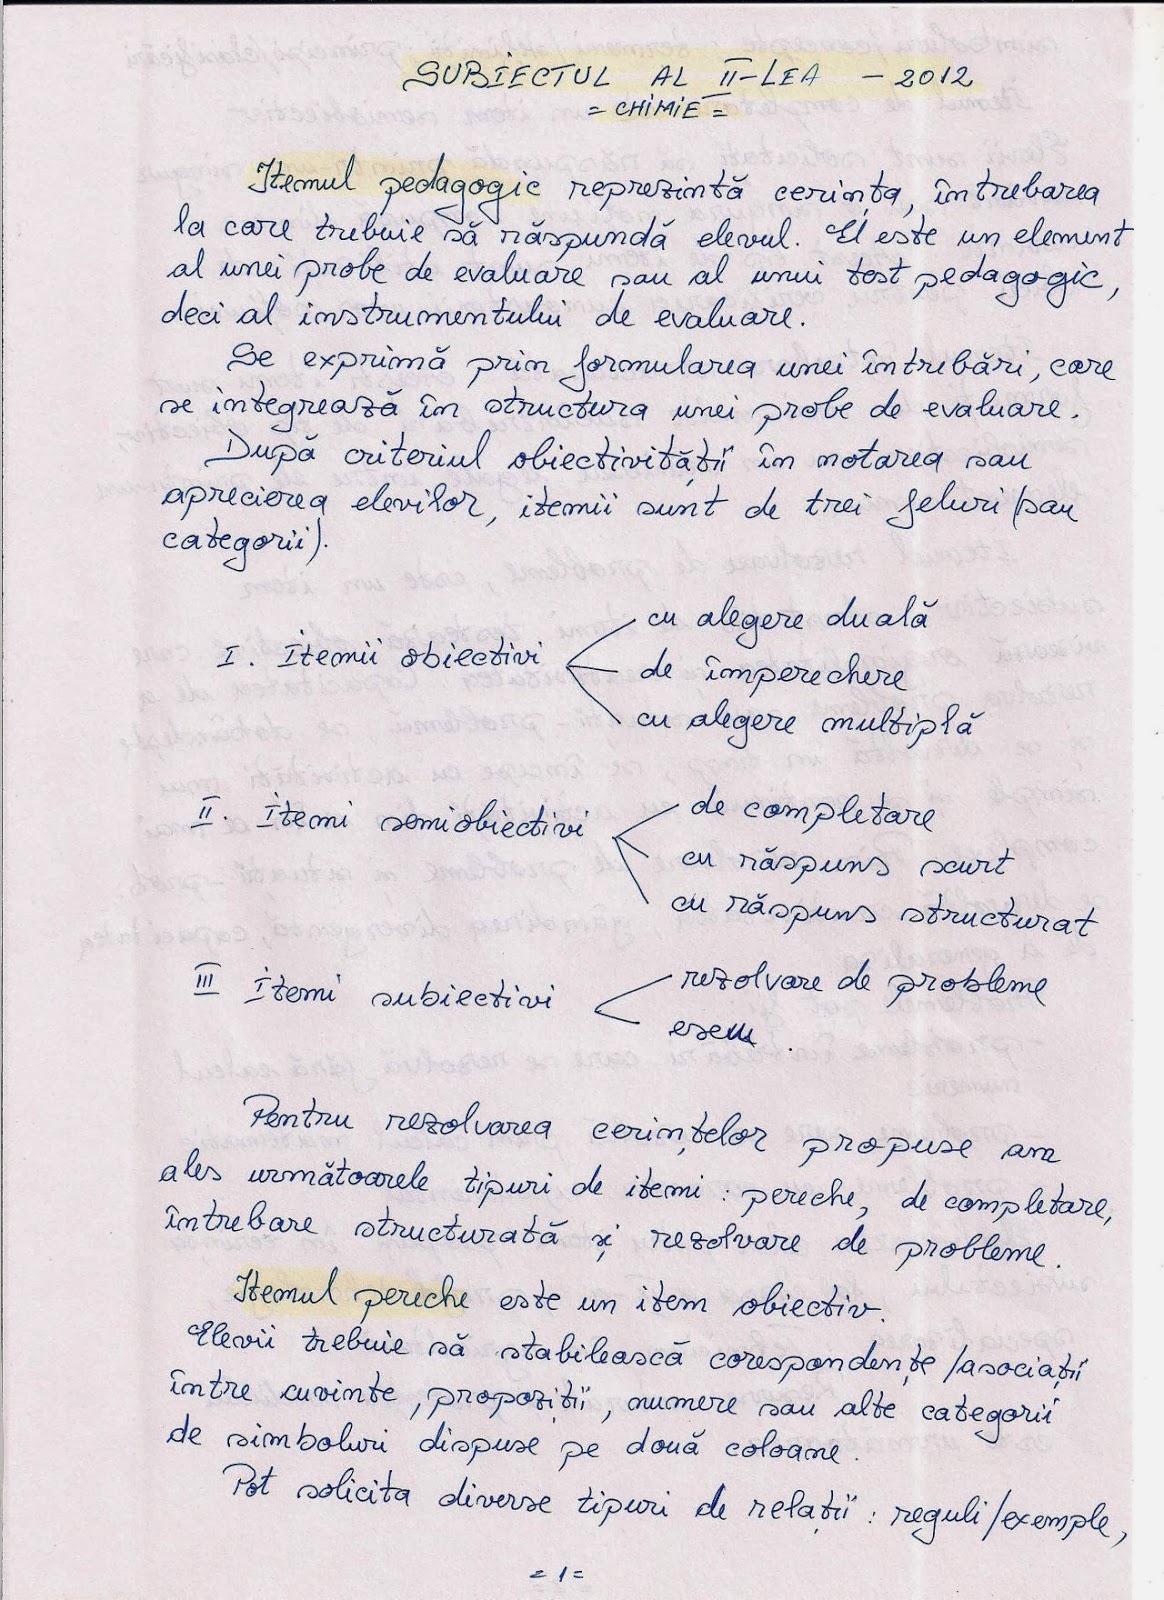 SUBIECTUL AL II-LEA - 2012
= CHIMIE =
Itemul pedagogic reprezintă cerința, întrebarea
la care trebuie să răspundă elevul. El este un element
al unei probe de evaluare sau al unui test pedagogic,
deci al instrumentului de evaluare.
Se exprimă prin formularea unei întrebări, care
se integrează în structura unei probe de evaluare.
După criteriul obiectivității în notarea sau
aprecierea elevilor, itemii sunt de trei feluri (sau
categorii).
cu alegere duală
I. Itemii obiectivi
de împerechere
cu alegere multiplă
de completare
II. Itemi semiobiectivi
cu răspuns scurt
cu răspuns structurat
rezolvare de probleme
III Itemi subiectivi
eseu.
Pentru rezolvarea cerințelor propuse am
ales următoarele tipuri de itemi: pereche, de completare,
întrebare structurată și rezolvare de probleme.
Itemul pereche este un item obiectiv.
Elevii trebuie să stabilească corespondențe/asociații
între cuvinte, propoziții, numere sau alte categorii
de simboluri dispuse pe două coloane.
Pot solicita diverse tipuri de relații: reguli/exemple,
= 1 =